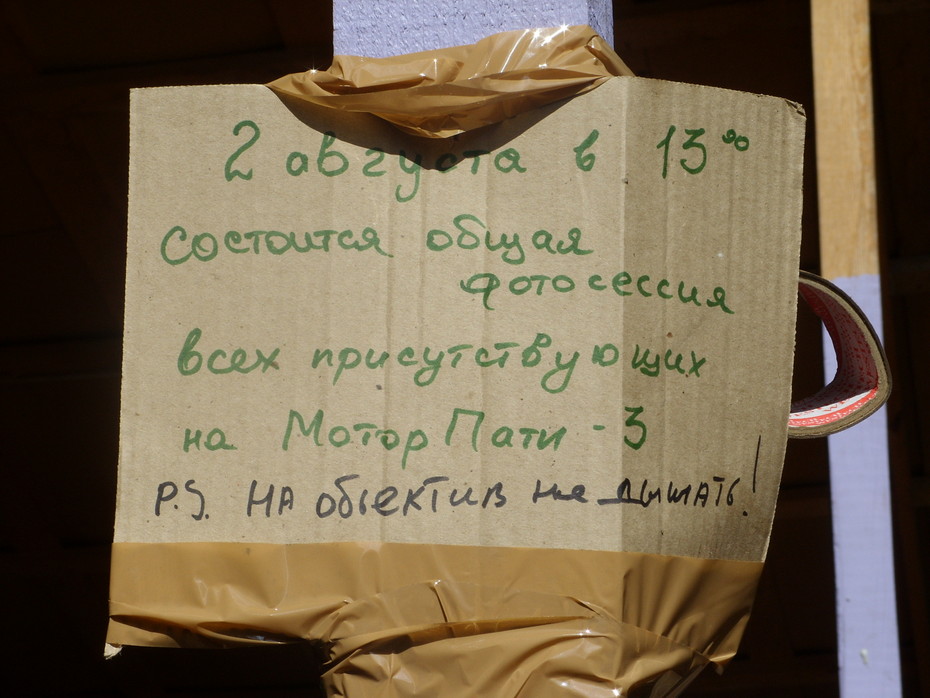 2 августа в 13⁰⁰
состоится общая
фотосессия
всех присутствующих
на МоторПати - 3
P.S. НА объектив не дышать!